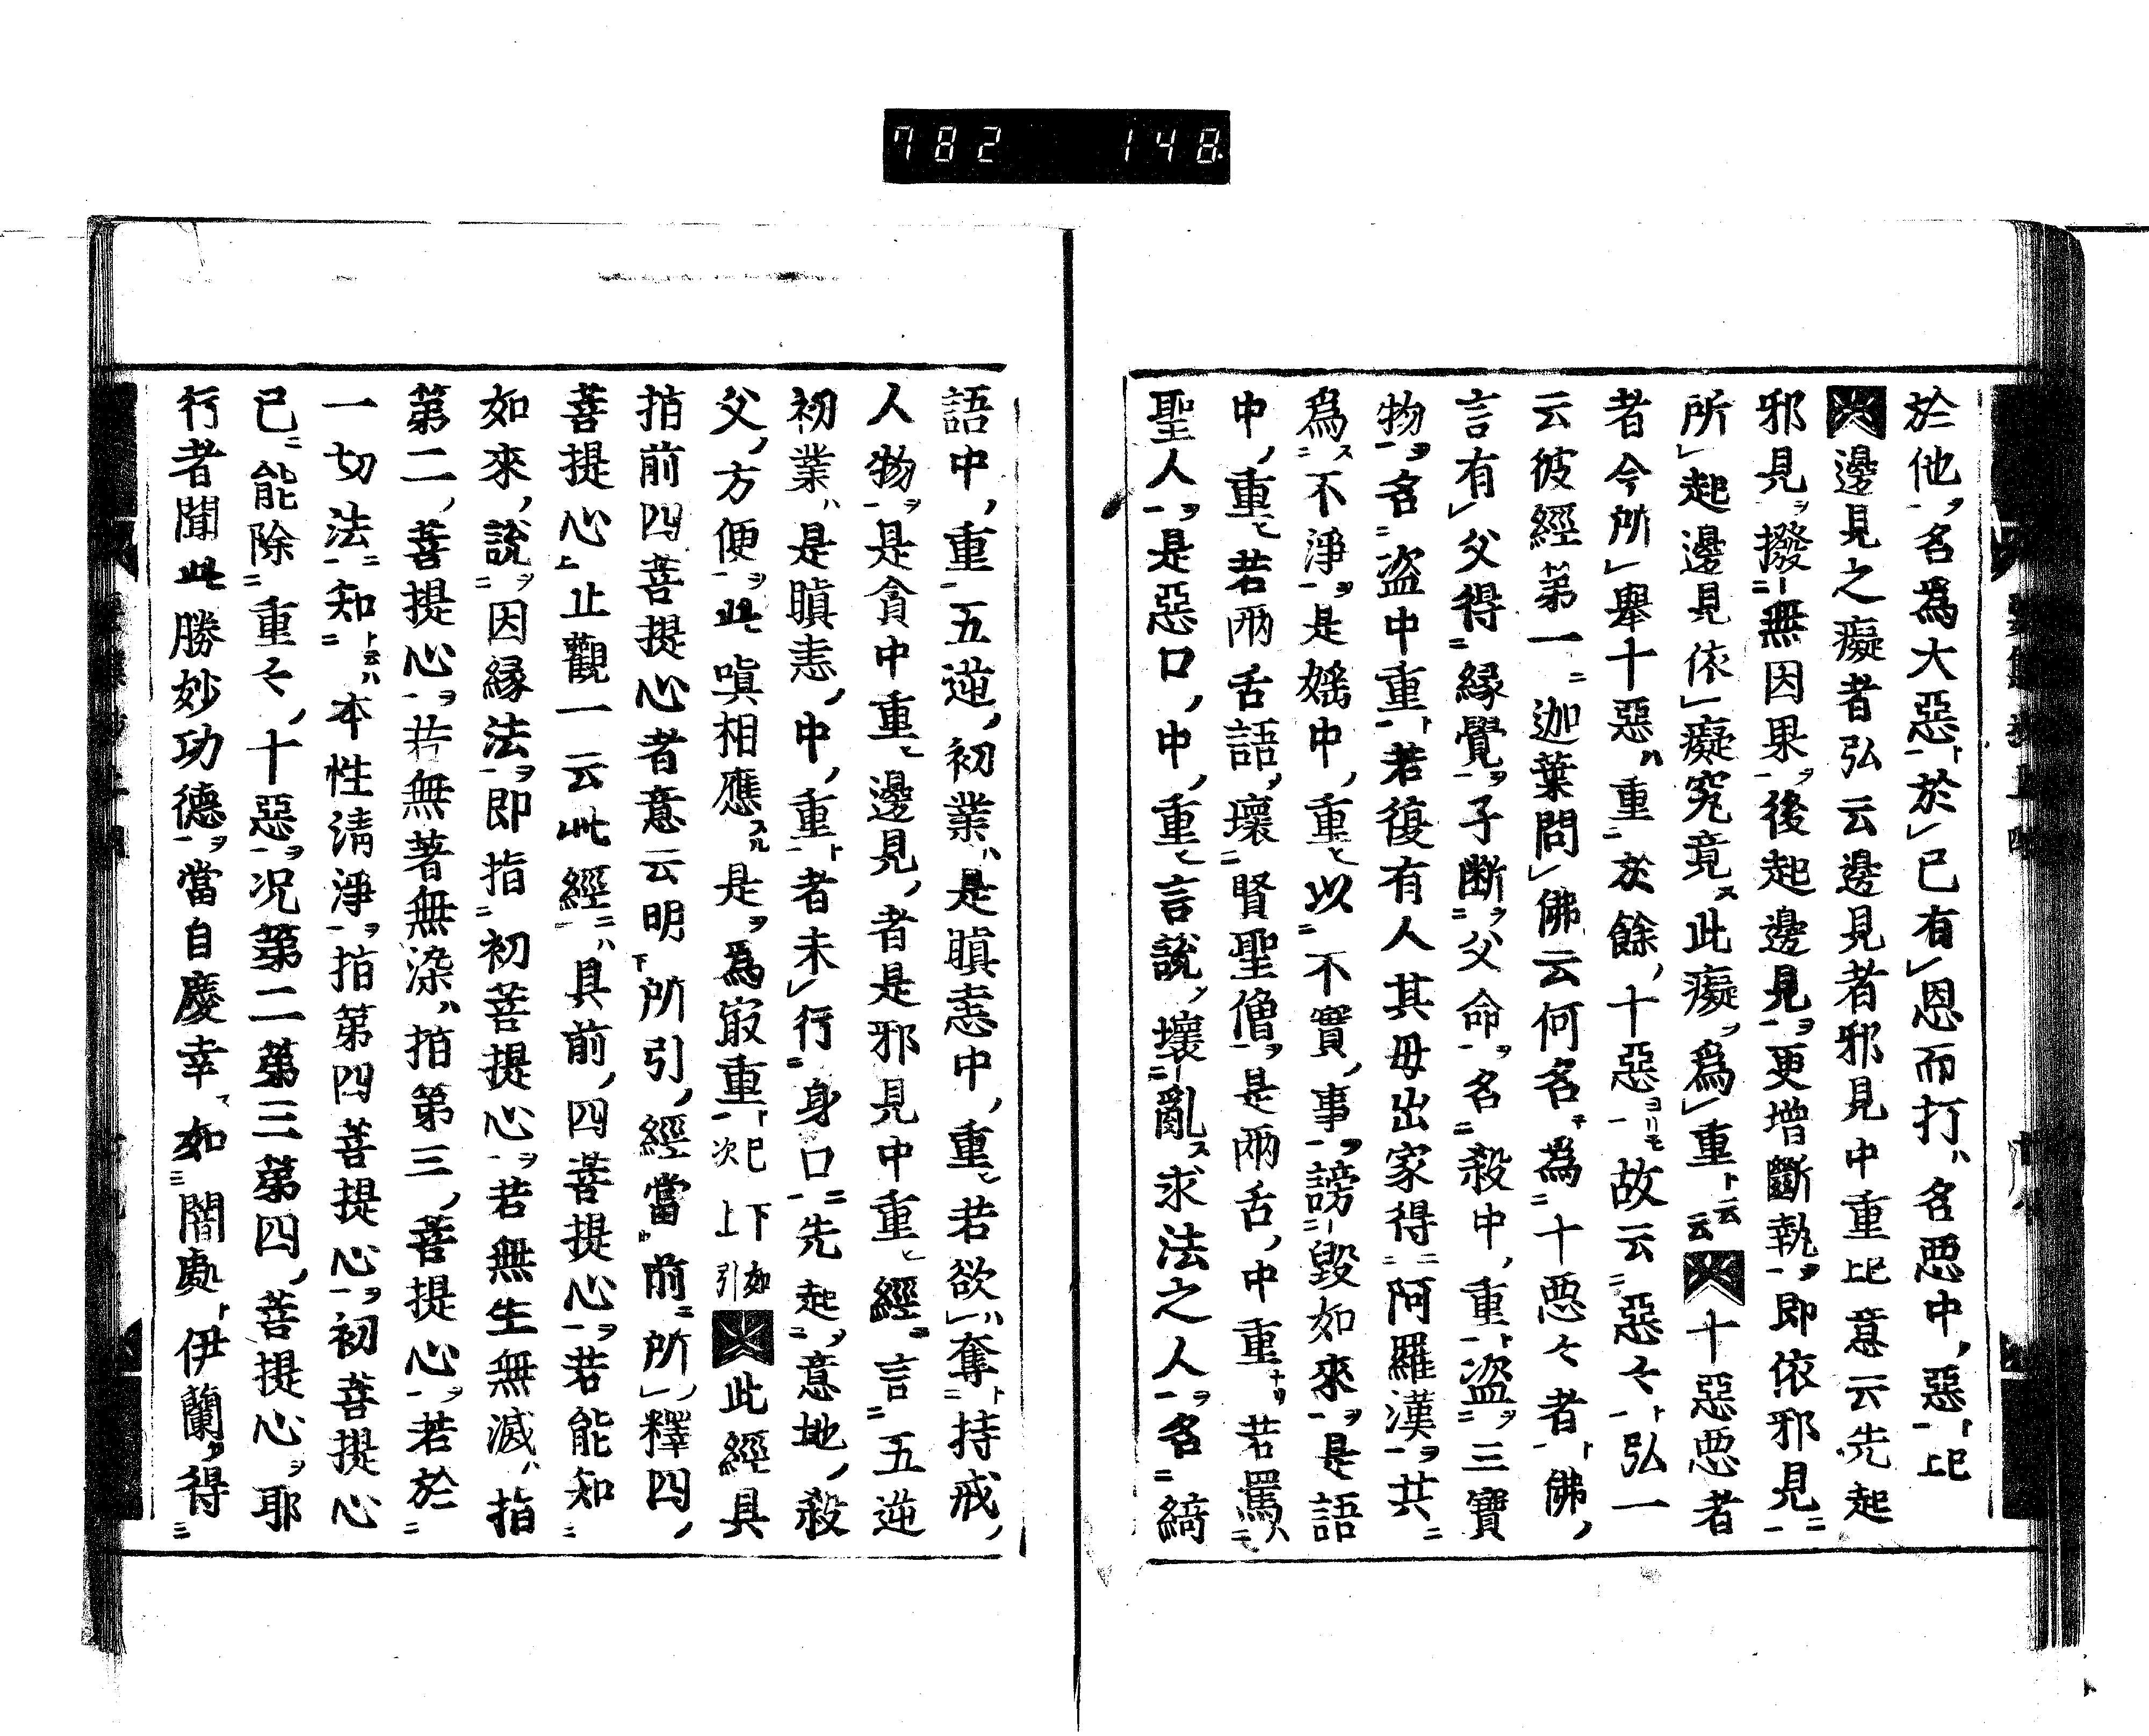 782 148
於他名為大惡於已有恩而打名惡中惡已上
邊見之癡者弘云邊見者邪見中重已上意云先起
邪見撥無因果後起邊見更增斷執即依邪見
所起邊見依癡究竟此癡為重云云十惡惡者
者今所舉十惡重於餘十惡故云惡々弘一
云彼經第一迦葉問佛云何名為十惡々者佛
言有父得緣覺子斷父命名殺中重盜三寶
物名盜中重若復有人其母出家得阿羅漢共
為不淨是婬中重以不實事謗毀如來是語
中重若兩舌語壞賢聖僧是兩舌中重若罵
聖人是惡口中重言說壞亂求法之人名綺
語中重五逆初業是瞋恚中重若欲奪持戒
人物是貪中重邊見者是邪見中重經言五逆
初業是瞋恚中重者未行身口先起意地殺
父方便此嗔相應是為最重已上次下如引此經具
指前四菩提心者意云明所引經當前所釋四
菩提心止觀一云此經具前四菩提心若能知
如來說因緣法即指初菩提心若無生無滅指
第二菩提心若無著無染指第三菩提心若於
一切法知本性清淨指第四菩提心初菩提心
已能除重々十惡況第二第三第四菩提心耶
行者聞此勝妙功德當自慶幸如闇處伊蘭得